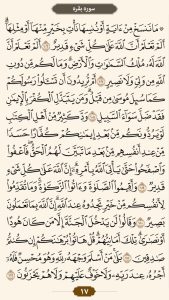 سوره بقره
مَا نَنسَخْ مِنْ ءَايَةٍ أَوْ نُنسِهَا نَأْتِ بِخَيْرٍ مِّنْهَا أَوْ مِثْلِهَا
أَلَمْ تَعْلَمْ أَنَّ ٱللَّهَ عَلَىٰ كُلِّ شَىْءٍ قَدِيرٌ ﴿١٠٦﴾ أَلَمْ تَعْلَمْ أَنَّ
ٱللَّهَ لَهُۥ مُلْكُ ٱلسَّمَـٰوَٰتِ وَٱلْأَرْضِ وَمَا لَكُم مِّن دُونِ
ٱللَّهِ مِن وَلِىٍّ وَلَا نَصِيرٍ ﴿١٠٧﴾ أَمْ تُرِيدُونَ أَن تَسْـَٔلُوا۟ رَسُولَكُمْ
كَمَا سُئِلَ مُوسَىٰ مِن قَبْلُ وَمَن يَتَبَدَّلِ ٱلْكُفْرَ بِٱلْإِيمَـٰنِ
فَقَدْ ضَلَّ سَوَآءَ ٱلسَّبِيلِ ﴿١٠٨﴾ وَدَّ كَثِيرٌ مِّنْ أَهْلِ ٱلْكِتَـٰبِ
لَوْ يَرُدُّونَكُم مِّنۢ بَعْدِ إِيمَـٰنِكُمْ كُفَّارًا حَسَدًا
مِّنْ عِندِ أَنفُسِهِم مِّنۢ بَعْدِ مَا تَبَيَّنَ لَهُمُ ٱلْحَقُّ فَٱعْفُوا۟
وَٱصْفَحُوا۟ حَتَّىٰ يَأْتِىَ ٱللَّهُ بِأَمْرِهِۦٓ إِنَّ ٱللَّهَ عَلَىٰ كُلِّ شَىْءٍ
قَدِيرٌ ﴿١٠٩﴾ وَأَقِيمُوا۟ ٱلصَّلَوٰةَ وَءَاتُوا۟ ٱلزَّكَوٰةَ وَمَا تُقَدِّمُوا۟
لِأَنفُسِكُم مِّنْ خَيْرٍ تَجِدُوهُ عِندَ ٱللَّهِ إِنَّ ٱللَّهَ بِمَا تَعْمَلُونَ
بَصِيرٌ ﴿١١٠﴾ وَقَالُوا۟ لَن يَدْخُلَ ٱلْجَنَّةَ إِلَّا مَن كَانَ هُودًا
أَوْ نَصَـٰرَىٰ تِلْكَ أَمَانِيُّهُمْ قُلْ هَاتُوا۟ بُرْهَـٰنَكُمْ إِن كُنتُمْ
صَـٰدِقِينَ ﴿١١١﴾ بَلَىٰ مَنْ أَسْلَمَ وَجْهَهُۥ لِلَّهِ وَهُوَ مُحْسِنٌ فَلَهُۥٓ
أَجْرُهُۥ عِندَ رَبِّهِۦ وَلَا خَوْفٌ عَلَيْهِمْ وَلَا هُمْ يَحْزَنُونَ ﴿١١٢﴾
١٧